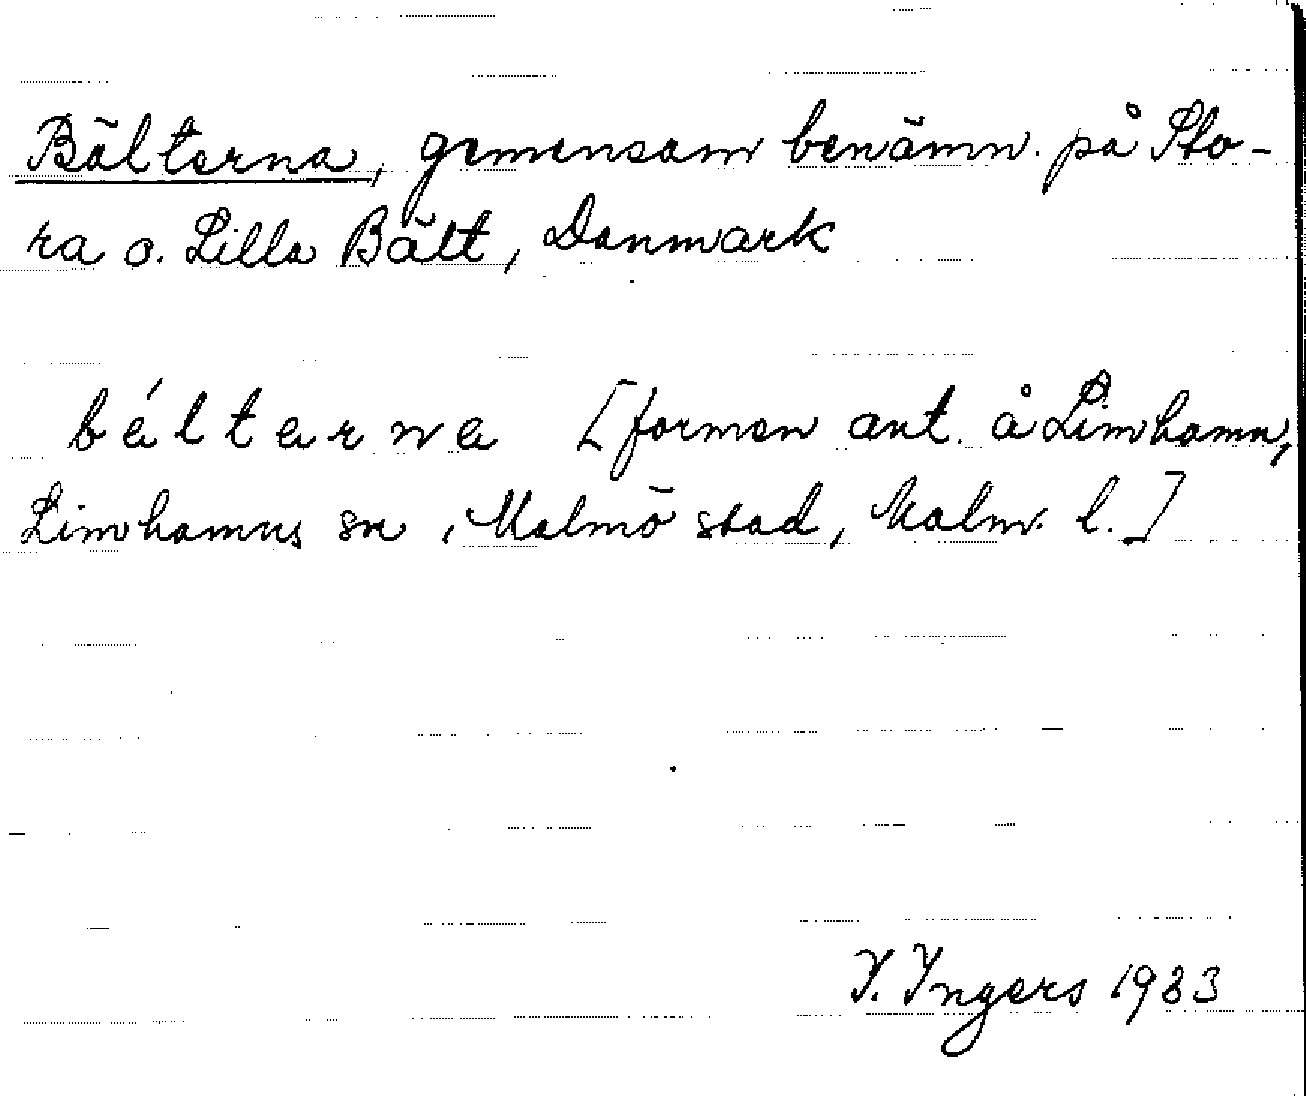 Bälterna, gemensam benämn. på Sto-
ra o. Lilla Bält, Danmark
bélterna [formen ant. å Limhamn,
Limhamns sn, Malmö stad, Malm. l.]
I. Ingers 1933